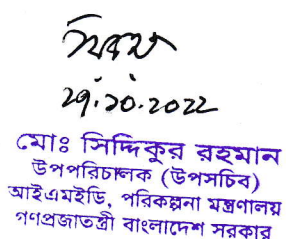 ২৭.১০.2022
মোঃ সিদ্দিকুর রহমান
উপপরিচালক (উপসচিব)
আইএমইডি, পরিকল্পনা মন্ত্রণালয়
গণপ্রজাতন্ত্রী বাংলাদেশ সরকার